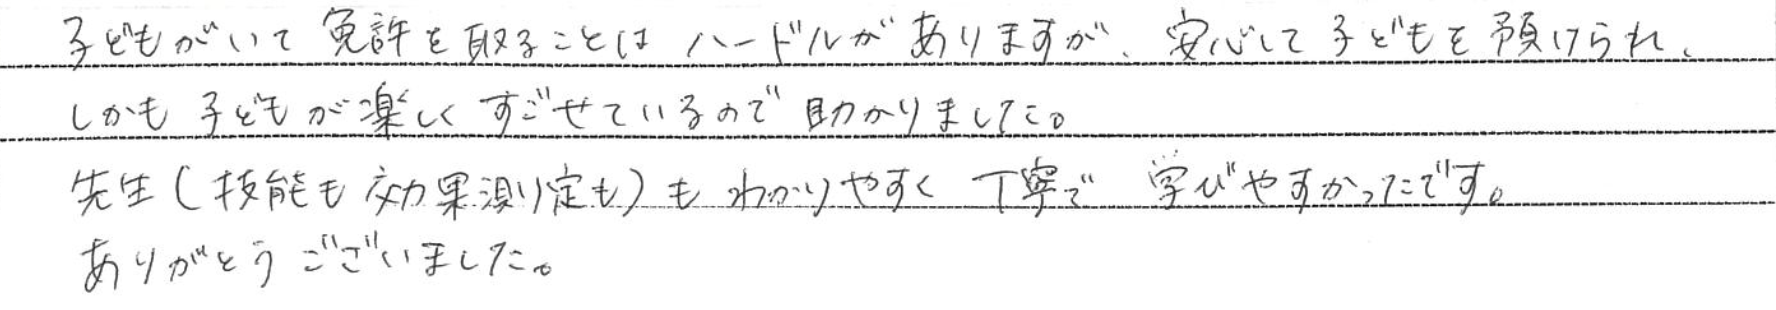 子どもがいて免許を取ることはハードルがありますが、安心して子どもを預けられ、
しかも子どもが楽しくすごせているので助かりました。
先生(技能も効果測定も)もわかりやすく丁寧で学びやすかったです。
ありがとうございました。